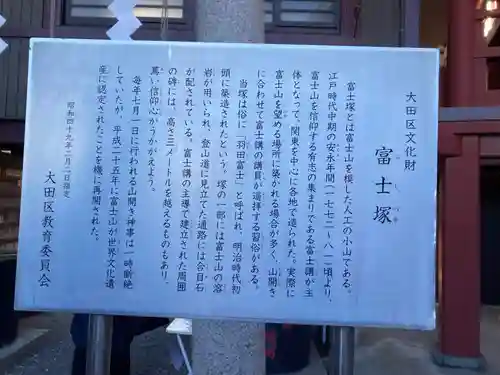 大田区文化財
富士塚
ふじづか
富士塚とは富士山を模した人工の小山である。
江戸時代中期の安永年間(一七七二‐八一)頃より、
富士山を信仰する有志の集まりである富士講が主
体となって、関東を中心に各地で造られた。実際に
富士山を望める場所に築かれる場合が多く、山開き
に合わせて富士講の講員が遥拝する習俗がある。
当塚は俗に「羽田富士」と呼ばれ、明治時代初
頭に築造されたという。塚の一部には富士山の溶
岩が用いられ、登山道に見立てた通路には合目石
が配されている。富士講の主導で建立された周囲
の碑には、高さ三メートルを越えるものもあり、
篤い信仰心がうかがえよう。
毎年七月一日に行われる山開き神事は一時断絶
していたが、平成二十五年に富士山が世界文化遺
産に認定されたことを機に再開された。
昭和四十九年二月二日指定
大田区教育委員会